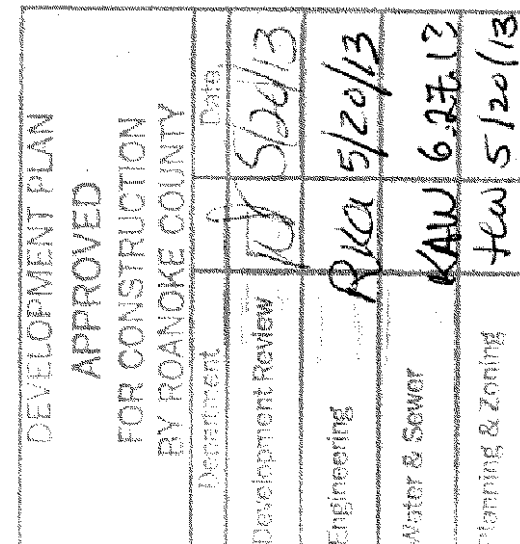 DEVELOPMENT PLAN
APPROVED
FOR CONSTRUCTION
BY ROANOKE COUNTY
Department Date
Development Review 5/20/13
Engineering RKA 5/20/13
Water & Sewer KAW 6.27.13
Planning & Zoning 5/20/13